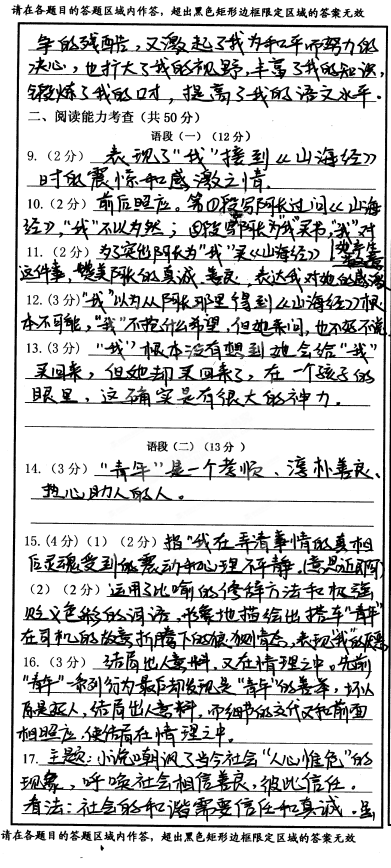 请在各题目的答题区域内作答，超出黑色矩形边框限定区域的答案无效
争的残酷，又激起了我为和平而努力的
决心，也扩大了我的视野，丰富了我的知识，
锻炼了我的口才，提高了我的语文水平。
二、阅读能力考查（共50分）
语段（一）（12分）
9.（2分）表现了“我”接到《山海经》
时的震惊和感激之情.
10.（2分）前后照应。第四段写阿长过问《山海
经》，“我”不以为然；四段写阿长为“我”买书，“我”对
11.（2分）为了突出阿长为“我”买《山海经》
这件事，赞美阿长的真诚、善良，表达我对她的感激
12.（3分）“我”以为从阿长那里得到《山海经》根
本不可能，“我”不抱什么希望，但她来问，也不好不说
13.（3分）“我”根本没有想到她会给“我”
买回来，但她却买回来了，在一个孩子的
眼里，这确实是有很大的神力。
语段（二）（13分）
14.（3分）“青年”是一个孝顺、淳朴善良、
热心助人的人。
15.（4分）（1）（2分）指“我在弄清事情的真相
后灵魂受到的震动和心理不平静。（意思近即可）
（2）（2分）运用了比喻的修辞方法和极强
贬义色彩的词语，形象地描绘出搭车“青年”
在司机的故意折腾下的狼狈情态，表现“我”的
16.（3分）结局出人意料，又在情理之中。先前
“青年”一系列行为最后却发现是“青年”的善举，
，结局出人意料，而细节的交代又和前面
相照应，使结局在情理之中.
17. 主题：小说嘲讽了当今社会“人心惟危”的
现象，呼唤社会相信善良，彼此信任。
看法：社会的和谐需要信任和真诚。虽
请在各题目的答题区域内作答，超出黑色矩形边框限定区域的答案无效